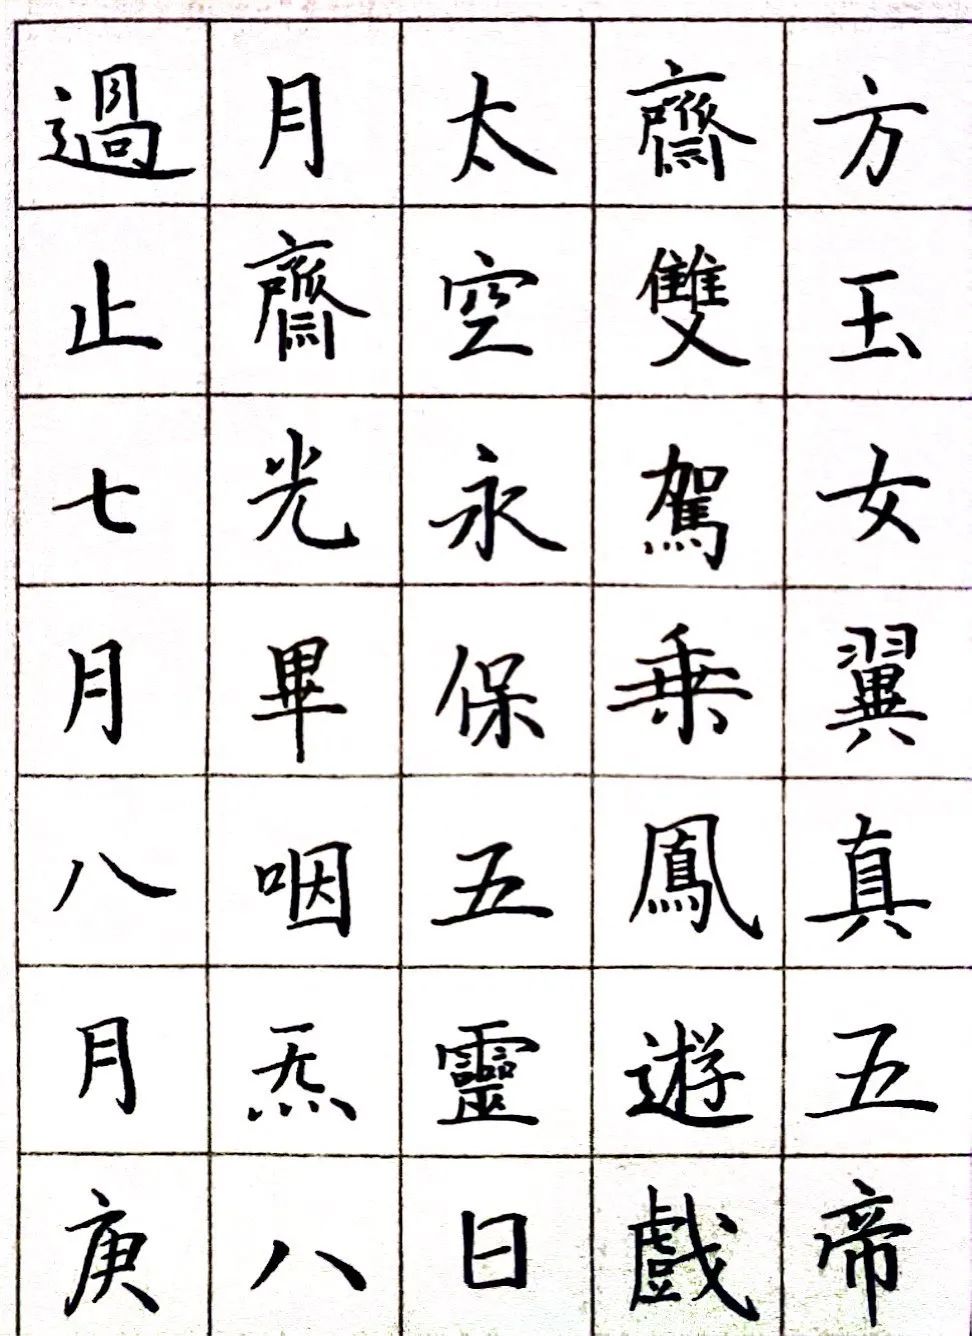 方玉女翼真五帝
齊雙駕乘鳳遊戲
太空永保五靈日
月齊光畢咽炁八
過止七月八月庚